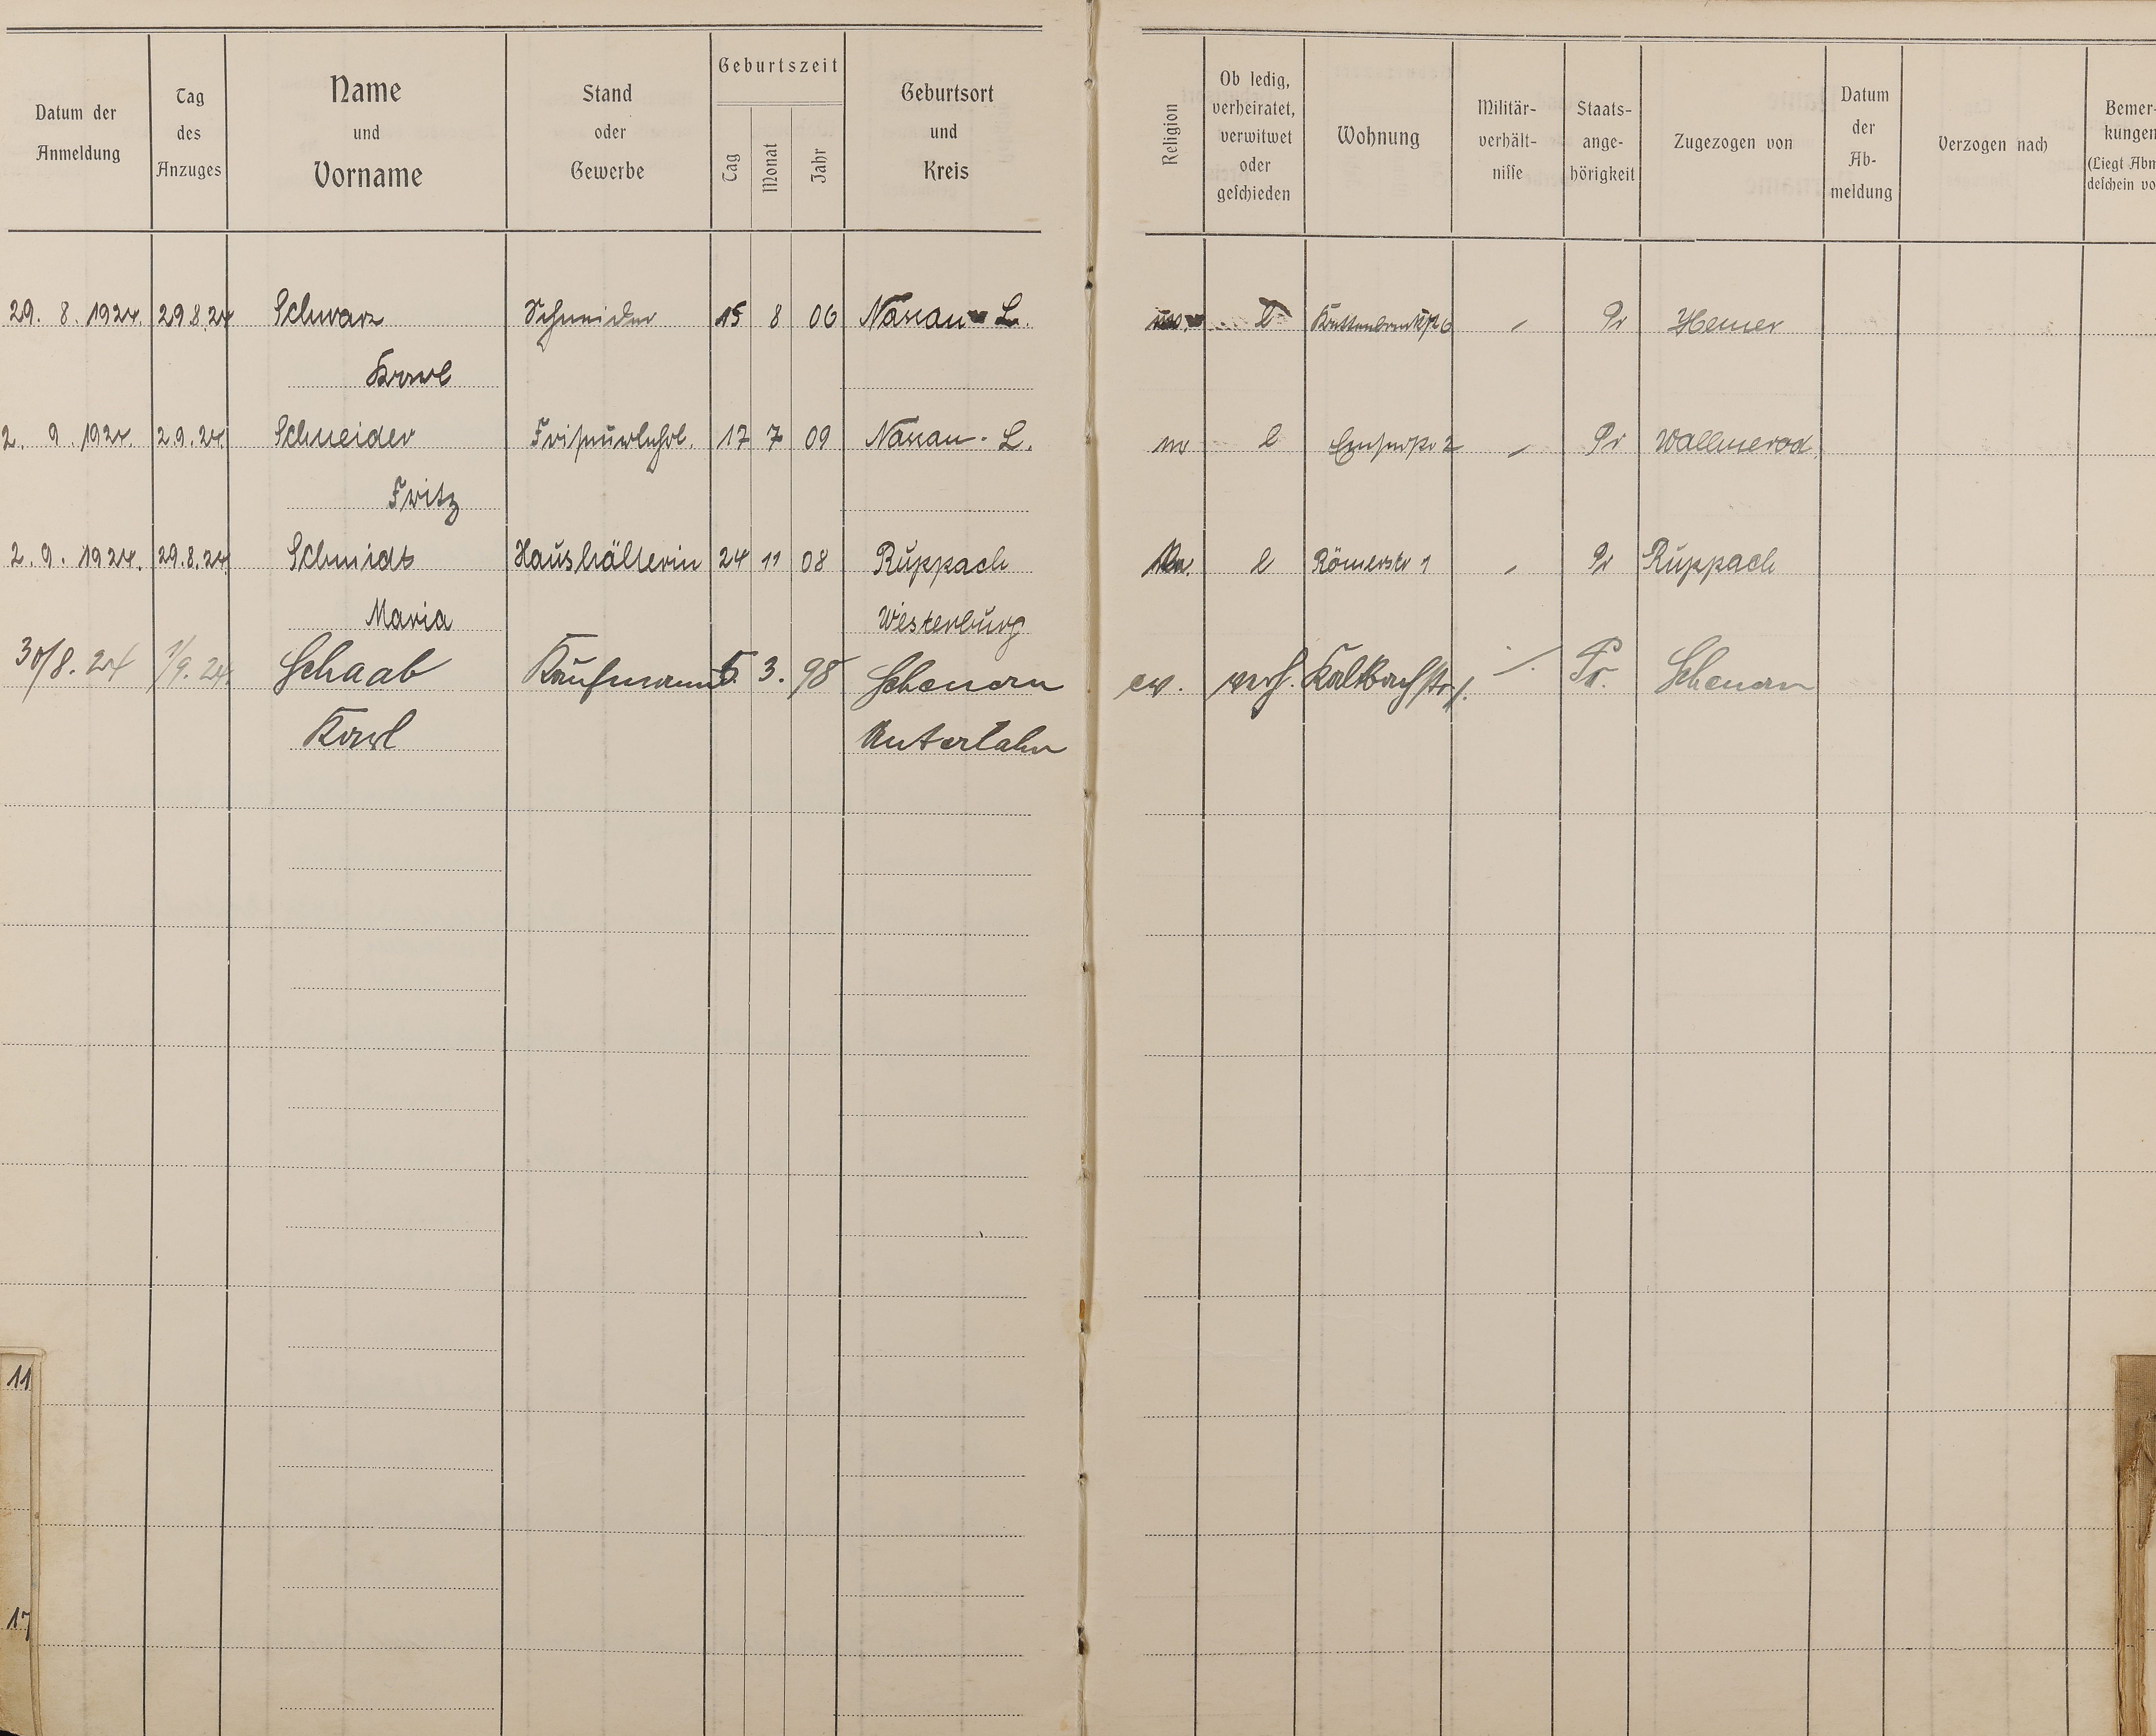 Datum der Anmeldung
Tag des Anzuges
Name und Vorname
Stand oder Gewerbe
Geburtszeit
Tag Monat Jahr
Geburtsort und Kreis
Religion
Ob ledig, verheiratet, verwitwet oder geschieden
Wohnung
Militär-verhält-nisse
Staats-ange-hörigkeit
Zugezogen von
Datum der Ab-meldung
Verzogen nach
Bemer-kungen
(Liegt Abm
deschein vo
29. 8. 1924. 29.8.24 Schwarz Schneider 15 8 06 Nassau L. l Pr Hemer
Karl
2. 9. 1924. 2.9.24. Schneider Friseurlehrl. 17 7 09 Nassau-L. ev l Emserstr 2 Pr Wallmerod
Fritz
2. 9. 1924. 29.8.24. Schmidt Haushälterin 24 11 08 Ruppach l Römerstr 1 Pr Ruppach
Maria Westerburg
30/8. 24 1/9. 24. Schaab Kaufmann 5. 3. 98 Schönau ev. verh. Kaltbachstr. 1. Pr. Schönau
Karl Unterlahn
11
17